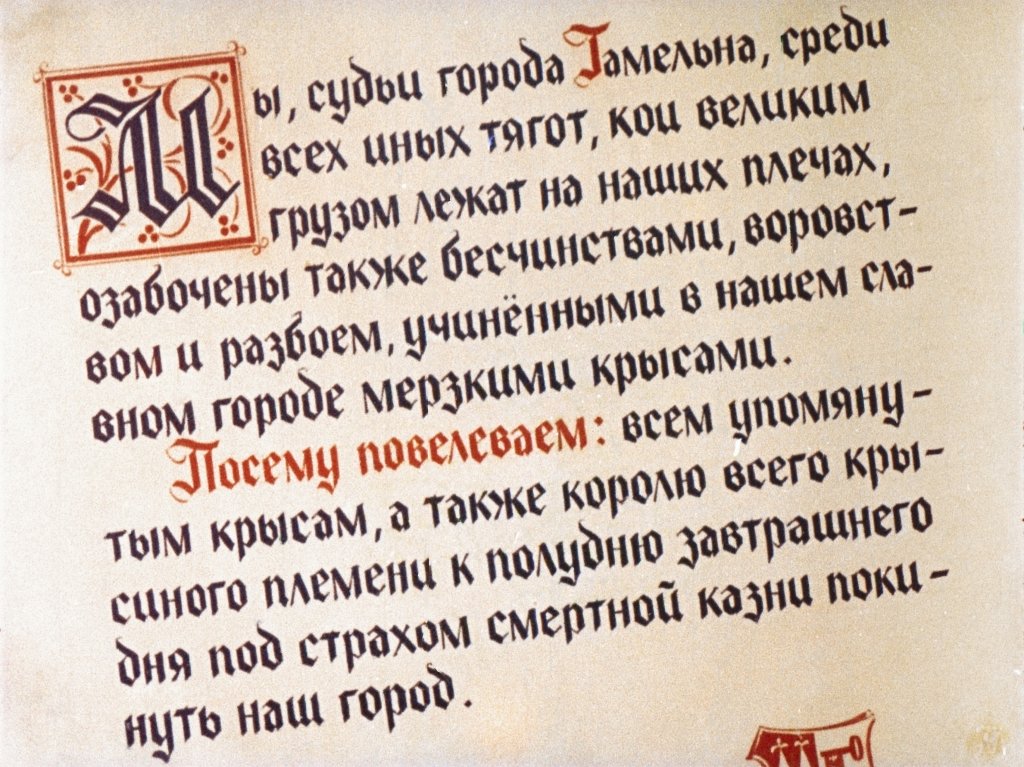 Мы, судьи города Гамельна, среди
всех иных тягот, кои великим
грузом лежат на наших плечах,
озабочены также бесчинствами, воровст-
вом и разбоем, учинёнными в нашем сла-
вном городе мерзкими крысами.
Посему повелеваем: всем упомяну-
тым крысам, а также королю всего кры-
синого племени к полудню завтрашнего
дня под страхом смертной казни поки-
нуть наш город.